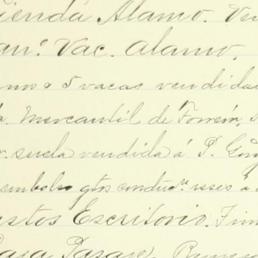 ienda Alamo. Ve
an.º Vac. Alamo,
no a 5 vacas vendidas
a. Mercantil de Torreón,
suela vendida á P. Gon
sembolso gtos conduc.n reses á
stos Escritorio.
Casa Pasaje